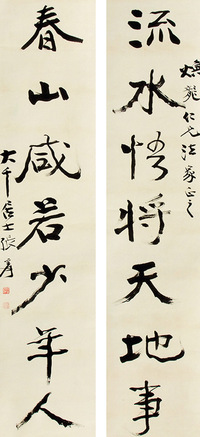 龍仁兄法家正之
流水悟將天地事
春山咸若少年人
大千居士張爰